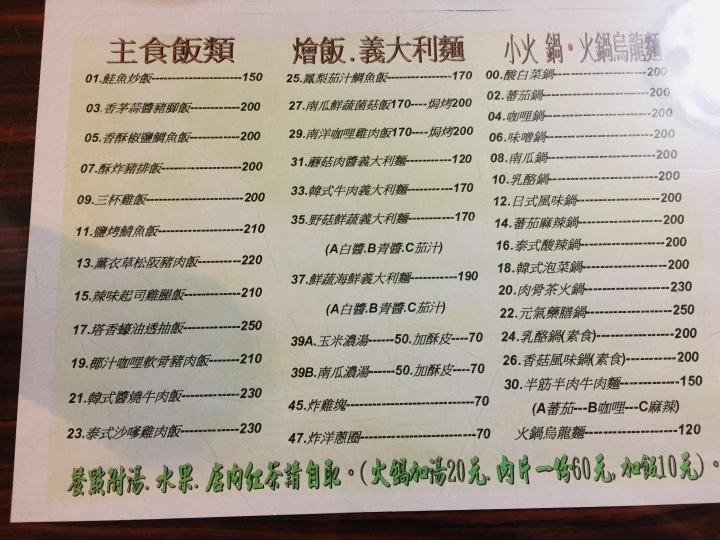 主食飯類
01.鮭魚炒飯-----------------------150
03.香茅蒜醬豬腳飯------------200
05.香酥椒鹽鯛魚飯------------200
07.酥炸豬排飯--------------------200
09.三杯雞飯-------------------------200
11.鹽烤鯖魚飯--------------------210
13.薰衣草松阪豬肉飯----------220
15.辣味起司雞腿飯--------------210
17.塔香蠔油透抽飯--------------250
19.椰汁咖哩軟骨豬肉飯-------210
21.韓式醬燒牛肉飯--------------230
23.泰式沙嗲雞肉飯--------------230
燴飯.義大利麵
25.鳳梨茄汁鯛魚飯----------------170
27.南瓜鮮蔬菌菇飯170----焗烤200
29.南洋咖哩雞肉飯170----焗烤200
31.蘑菇肉醬義大利麵-----------120
33.韓式牛肉義大利麵-----------170
35.野菇鮮蔬義大利麵-----------170
(A白醬.B青醬.C茄汁)
37.鮮蔬海鮮義大利麵------------190
(A白醬.B青醬.C茄汁)
39A.玉米濃湯------50.加酥皮----70
39B.南瓜濃湯------50.加酥皮----70
45.炸雞塊--------------------------------70
47.炸洋蔥圈-----------------------------70
小火 鍋•火鍋烏龍麵
00.酸白菜鍋-----------------------200
02.蕃茄鍋---------------------------200
04.咖哩鍋---------------------------200
06.味噌鍋---------------------------200
08.南瓜鍋---------------------------200
10.乳酪鍋---------------------------200
12.日式風味鍋--------------------200
14.蕃茄麻辣鍋--------------------200
16.泰式酸辣鍋--------------------200
18.韓式泡菜鍋--------------------200
20.肉骨茶火鍋--------------------230
22.元氣藥膳鍋--------------------250
24.乳酪鍋(素食)-------------------200
26.香菇風味鍋(素食)------------200
30.半筋半肉牛肉麵--------------150
(A蕃茄---B咖哩---C麻辣)
火鍋烏龍麵----------------------120
餐點附湯.水果.店內紅茶請自取。(火鍋加湯20元.肉片一份60元,加飯10元)。